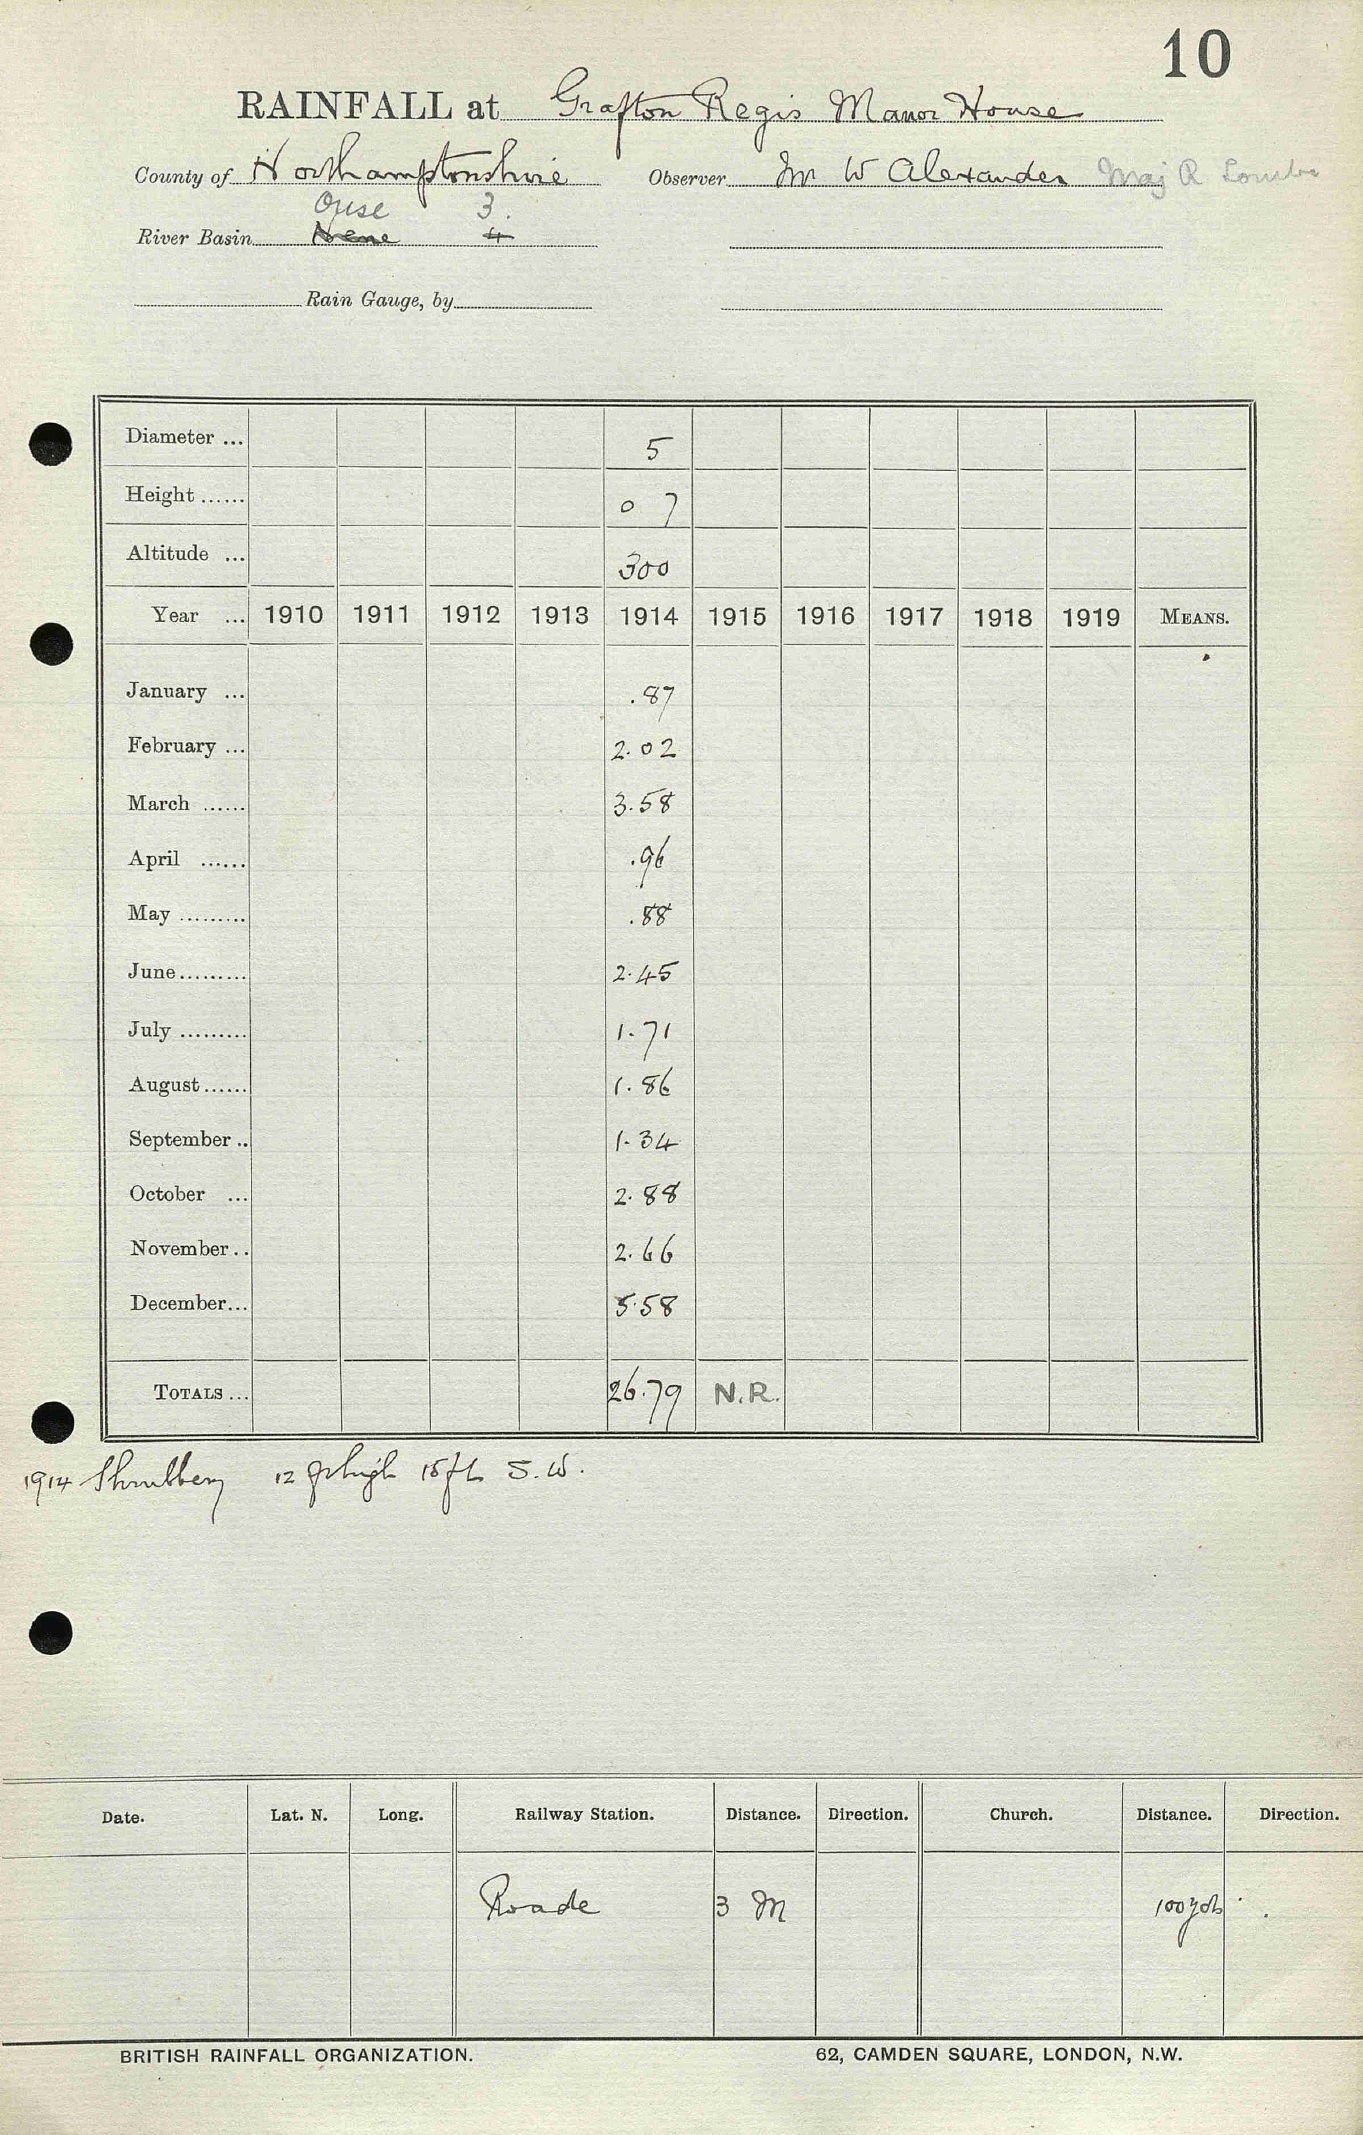 10
RAINFALL at Grafton Regis Manor House
County of Northamptonshire Observer Mr W Alexander Maj R
Ouse 3.
River Basin Nene 4
Rain Gauge, by
Diameter ... 5
Height ...... 0 7
Altitude ... 300
Year ... 1910 1911 1912 1913 1914 1915 1916 1917 1918 1919 MEANS.
January ... .87
February ... 2.02
March ...... 3.58
April ...... .96
May ......... .88
June ......... 2.45
July ......... 1.71
August ...... 1.86
September .. 1.34
October ... 2.88
November .. 2.66
December ... 5.58
TOTALS ... 26.79 N.R.
1914 Shrubbery 12 ft high 15 ft S.W.
Date. Lat. N. Long. Railway Station. Distance. Direction. Church. Distance. Direction.
Roade 3 M 100 yds
BRITISH RAINFALL ORGANIZATION. 62, CAMDEN SQUARE, LONDON, N.W.